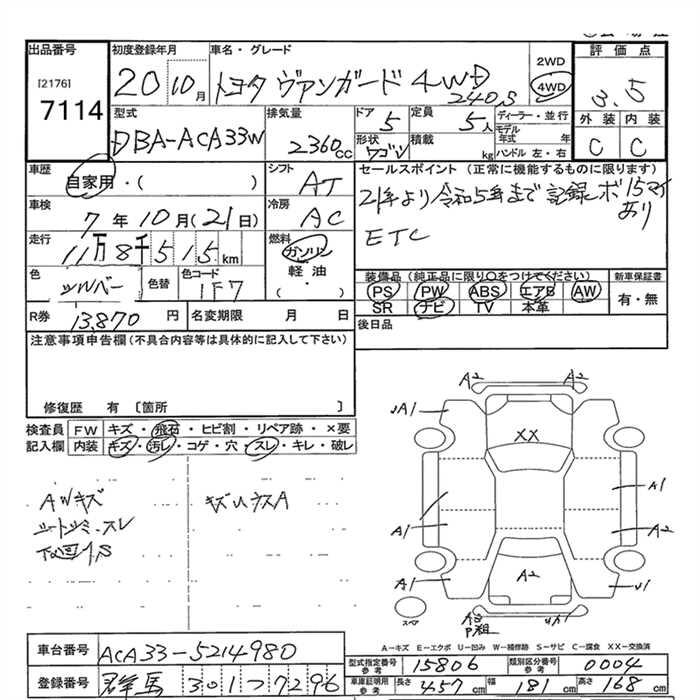 出品番号
[2176]
7114
初度登録年月
20 10月
車名・グレード
トヨタ ヴァンガード 4WD
240S
2WD
4WD
評価点
3.5
外装 内装
C C
型式
DBA-ACA33W
排気量
2360cc
ドア
5
定員
5人
形状
ワゴン
積載
kg
ディーラー・並行
モデル年式 年
ハンドル 左・右
車歴
自家用・( )
シフト
AT
車検
7年10月(21日)
冷房
AC
走行
11万8千515km
燃料
ガソリン
軽油
( )
色
シルバー
色替
色コード
1F7
R券
13,870円
名変期限 月 日
セールスポイント (正常に機能するものに限ります)
21年より令和5年まで記録ボ15マイ
あり
ETC
装備品(純正品に限り○をつけてください)
PS PW ABS エアB AW
SR ナビ TV 本革
新車保証書
有・無
後日品
注意事項申告欄(不具合内容等は具体的に記入して下さい)
修復歴 有 〔箇所 〕
検査員記入欄
FW キズ・飛石・ヒビ割・リペア跡・×要
内装 キズ・汚レ・コゲ・穴・スレ・キレ・破レ
AWキズ
シートシミ・スレ
下回りS
キズUウスA
A2 A2
UA1
XX
A1
A1
A1
A2
A1
A2
U1
スペア
P組
A-キズ E-エクボ U-凹み W-補修跡 S-サビ C-腐食 XX-交換済
車台番号
ACA33-5214980
登録番号
群馬 301 7296
型式指定番号
参考
15806
類別区分番号
参考
0004
車庫証明用
参考
長さ 457cm 幅 181cm 高さ 168cm